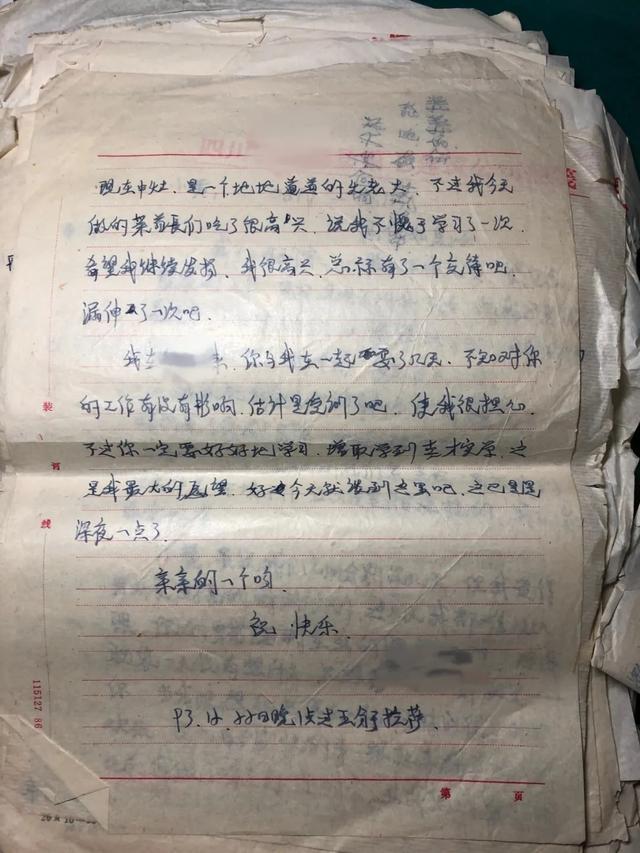 四川
现在中灶，是一个地地道道的先老大，不过我今天
做的菜首长们吃了很高兴，说我不愧于学习了一次
希望我继续发扬，我很高兴，总标有了一个交待吧
漏伸了一次吧
我去 来，你与我在一起耍了几天，不知对你
的工作有没有影响，估计是受训了吧，使我很担心，
不过你一定要好好地学习，增取学到真才实学，这
是我最大的愿望，好今天就谈到这里吧，这已是是
深夜一点了
亲亲的一个吻
祝 快乐
93.12.22日晚 拉萨
装
订
线
115127 86
第 页